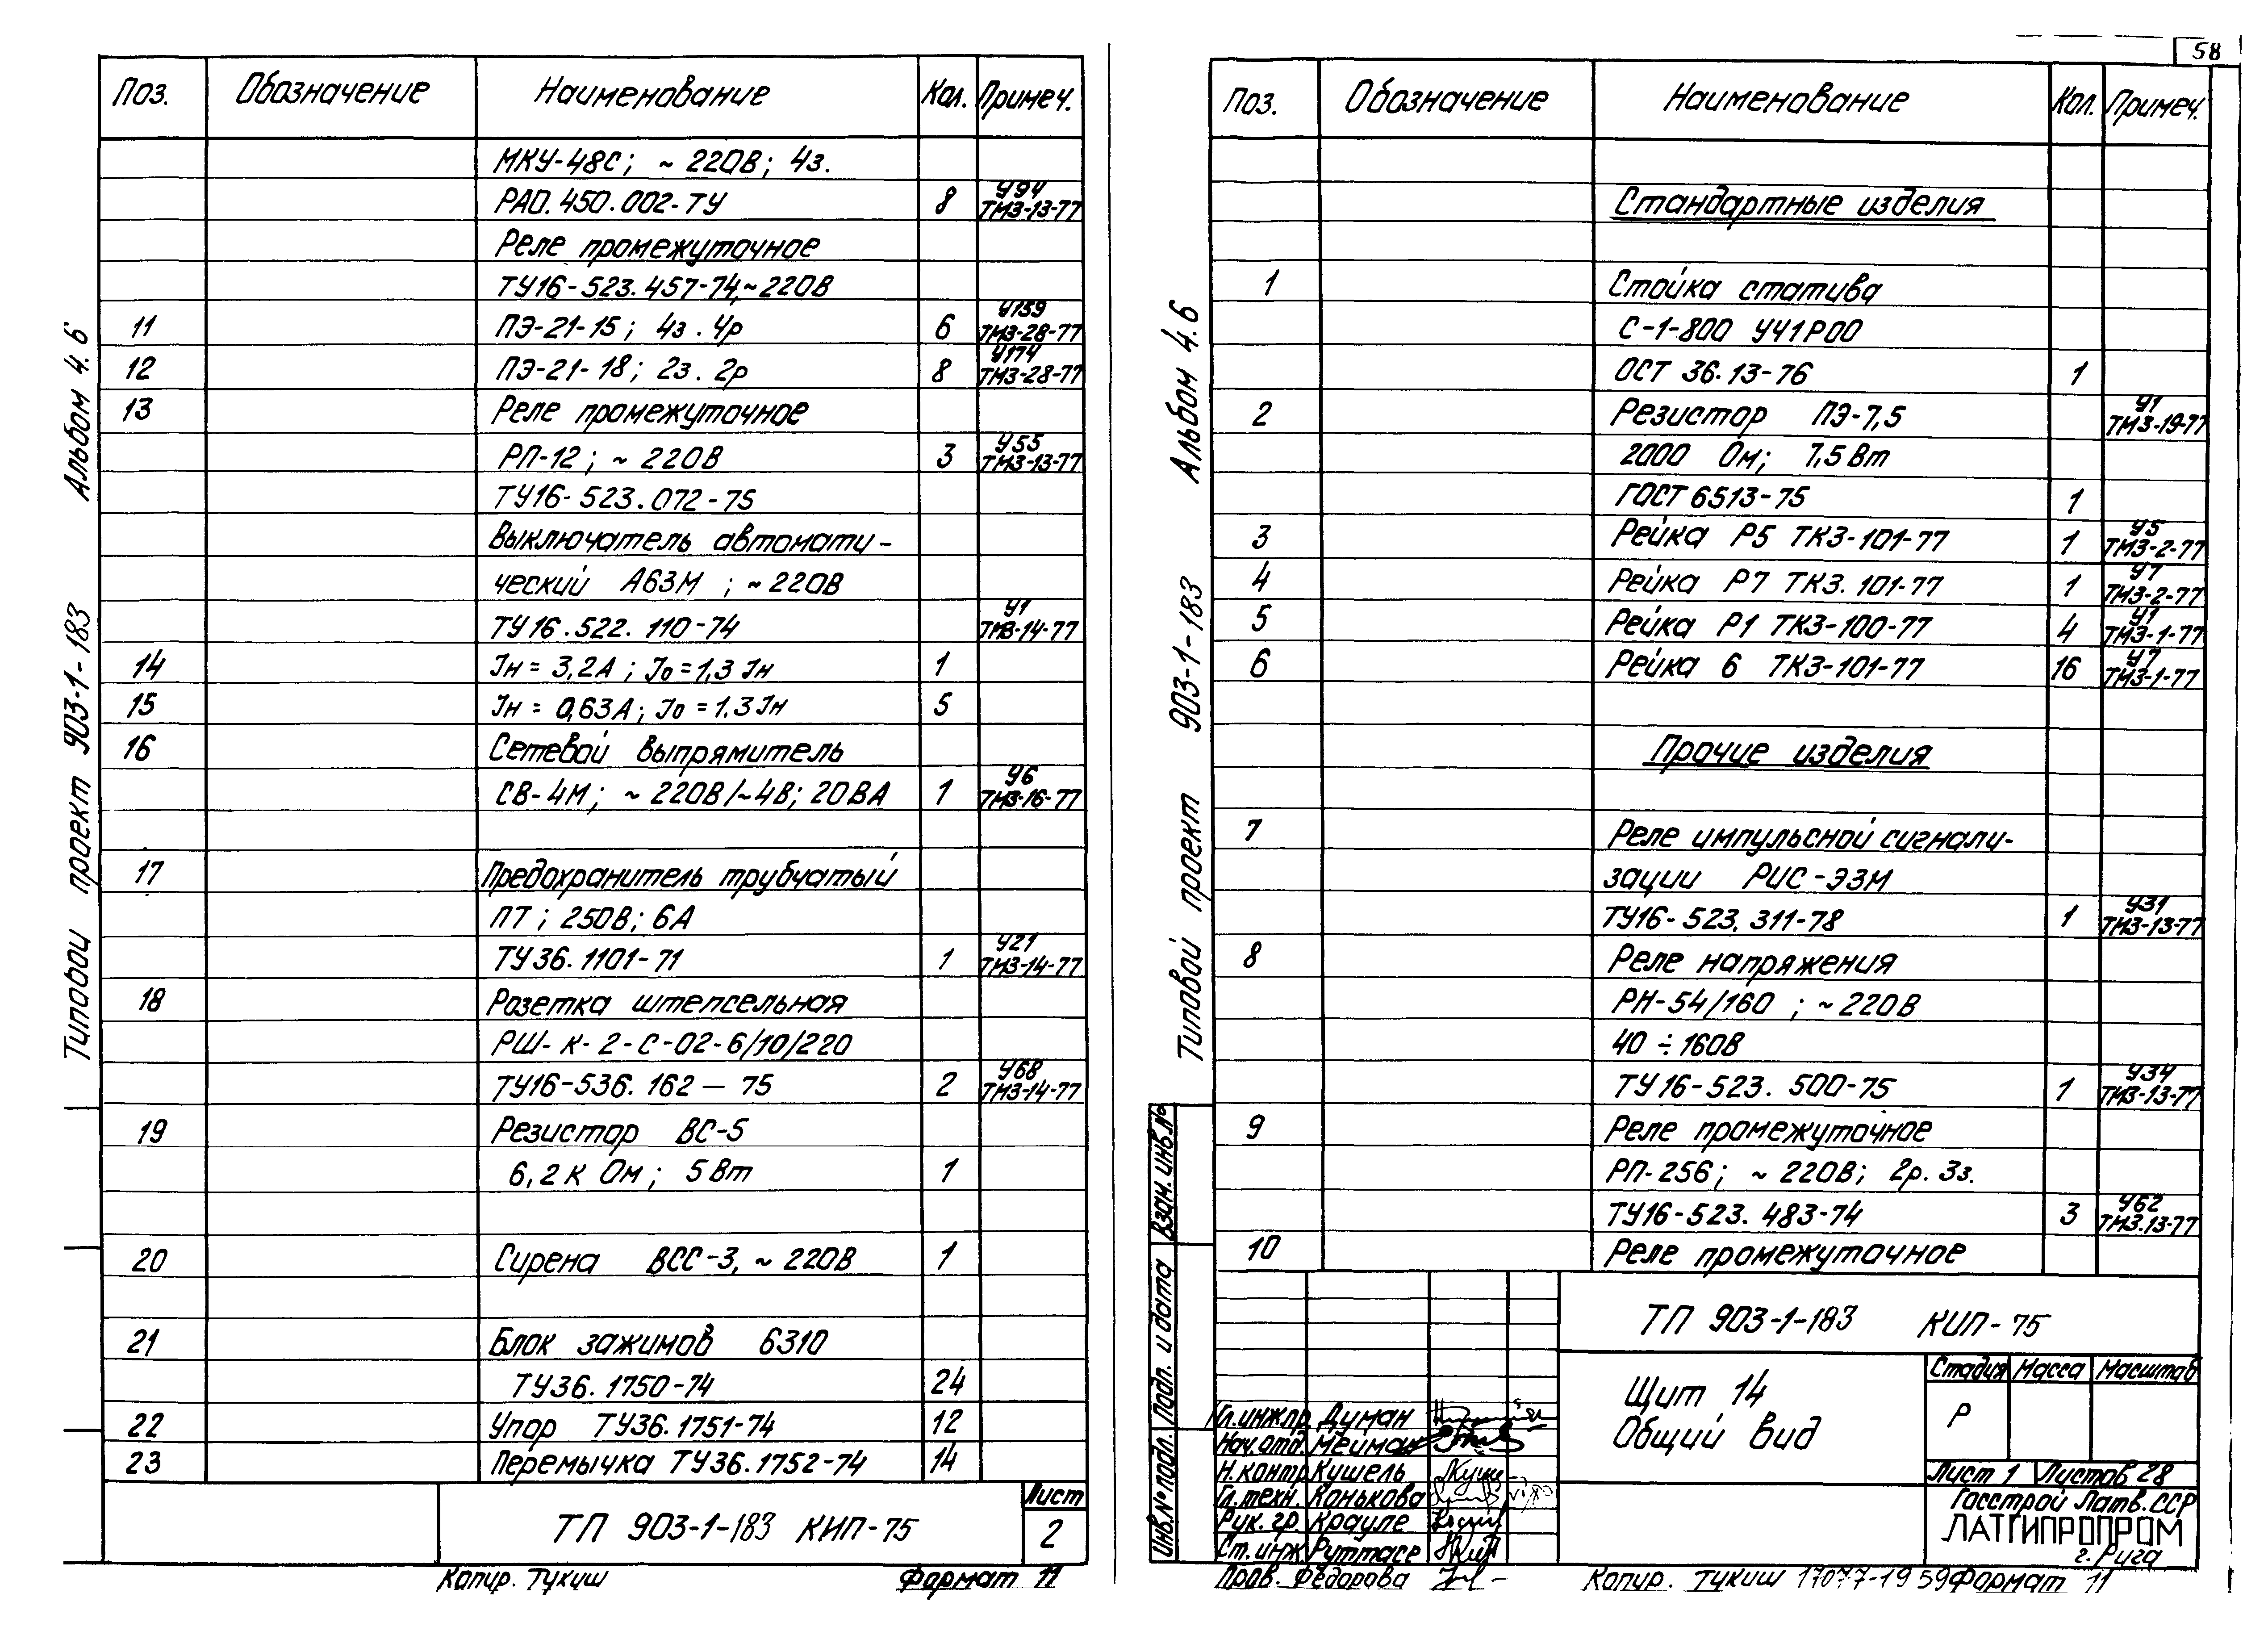 Поз. Обозначение Наименование Кол. Примеч.
МКУ-48С; ~ 220В; 4з.
РАО.450.002-ТУ 8 У94 ТМ3-13-77
Реле промежуточное
ТУ16-523.457-74,~220В
11 ПЭ-21-15; 4з. 4р 6 У159 ТМ3-28-77
12 ПЭ-21-18; 2з. 2р 8 У174 ТМ3-28-77
13 Реле промежуточное
РП-12; ~ 220В 3 У55 ТМ3-13-77
ТУ16-523.072-75
Выключатель автомати-
ческий А63М ; ~220В
ТУ16.522.110-74 У1 ТМ3-14-77
14 Jн = 3,2А; Jо=1,3 Jн 1
15 Jн = 0,63А; Jо=1.3 Jн 5
16 Сетевой выпрямитель
СВ-4М; ~ 220В/~4В; 20ВА 1 У6 ТМ3-16-77
17 Предохранитель трубчатый
ПТ; 250В; 6А
ТУ36.1101-71 1 У21 ТМ3-14-77
18 Розетка штепсельная
РШ-к-2-С-02-6/10/220
ТУ16-536.162-75 2 У68 ТМ3-14-77
19 Резистор ВС-5
6,2 к Ом; 5 Вт 1
20 Сирена ВСС-3, ~ 220В 1
21 Блок зажимов Б310
ТУ36.1750-74 24
22 Упор ТУ36.1751-74 12
23 Перемычка ТУ36.1752-74 14
ТП 903-1-183 КИП-75
Лист
2
Копир. Тукиш Формат 11
Типовой проект 903-1-183 Альбом 4.6
58
Поз. Обозначение Наименование Кол. Примеч.
Стандартные изделия
1 Стойка статива
С-1-800 УЧ1Р00
ОСТ 36.13-76 1
2 Резистор ПЭ-7,5 У1 ТМ3-19-77
2000 Ом; 7,5 Вт
ГОСТ 6513-75 1
3 Рейка Р5 ТК3-101-77 1 У5 ТМ3-2-77
4 Рейка Р7 ТК3.101-77 1 У7 ТМ3-2-77
5 Рейка Р1 ТК3-100-77 4 У1 ТМ3-1-77
6 Рейка 6 ТК3-101-77 16 У7 ТМ3-1-77
Прочие изделия
7 Реле импульсной сигнали-
зации РИС-Э3М
ТУ16-523.311-78 1 У31 ТМ3-13-77
8 Реле напряжения
РН-54/160 ; ~220В
40 ÷ 160В
ТУ16-523.500-75 1 У34 ТМ3-13-77
9 Реле промежуточное
РП-256; ~ 220В; 2р. 3з.
ТУ16-523.483-74 3 У62 ТМ3.13-77
10 Реле промежуточное
ТП 903-1-183 КИП-75
Щит 14
Общий вид
Стадия Масса Масштаб
Р
Лист 1 Листов 28
Госстрой Латв.ССР
ЛАТГИПРОПРОМ
г. Рига
Гл.инж.пр. Думан
Нач.отд. Мейман
Н.контр. Кушель
Гл.техн. Конькова
Рук. гр. Крауле
Ст.инж. Руттасе
Пров. Федорова
Копир. Тукиш 17077-19 59 Формат 11
Типовой проект 903-1-183 Альбом 4.6
Взам. инв.№
Подп. и дата
Инв.№ подл.